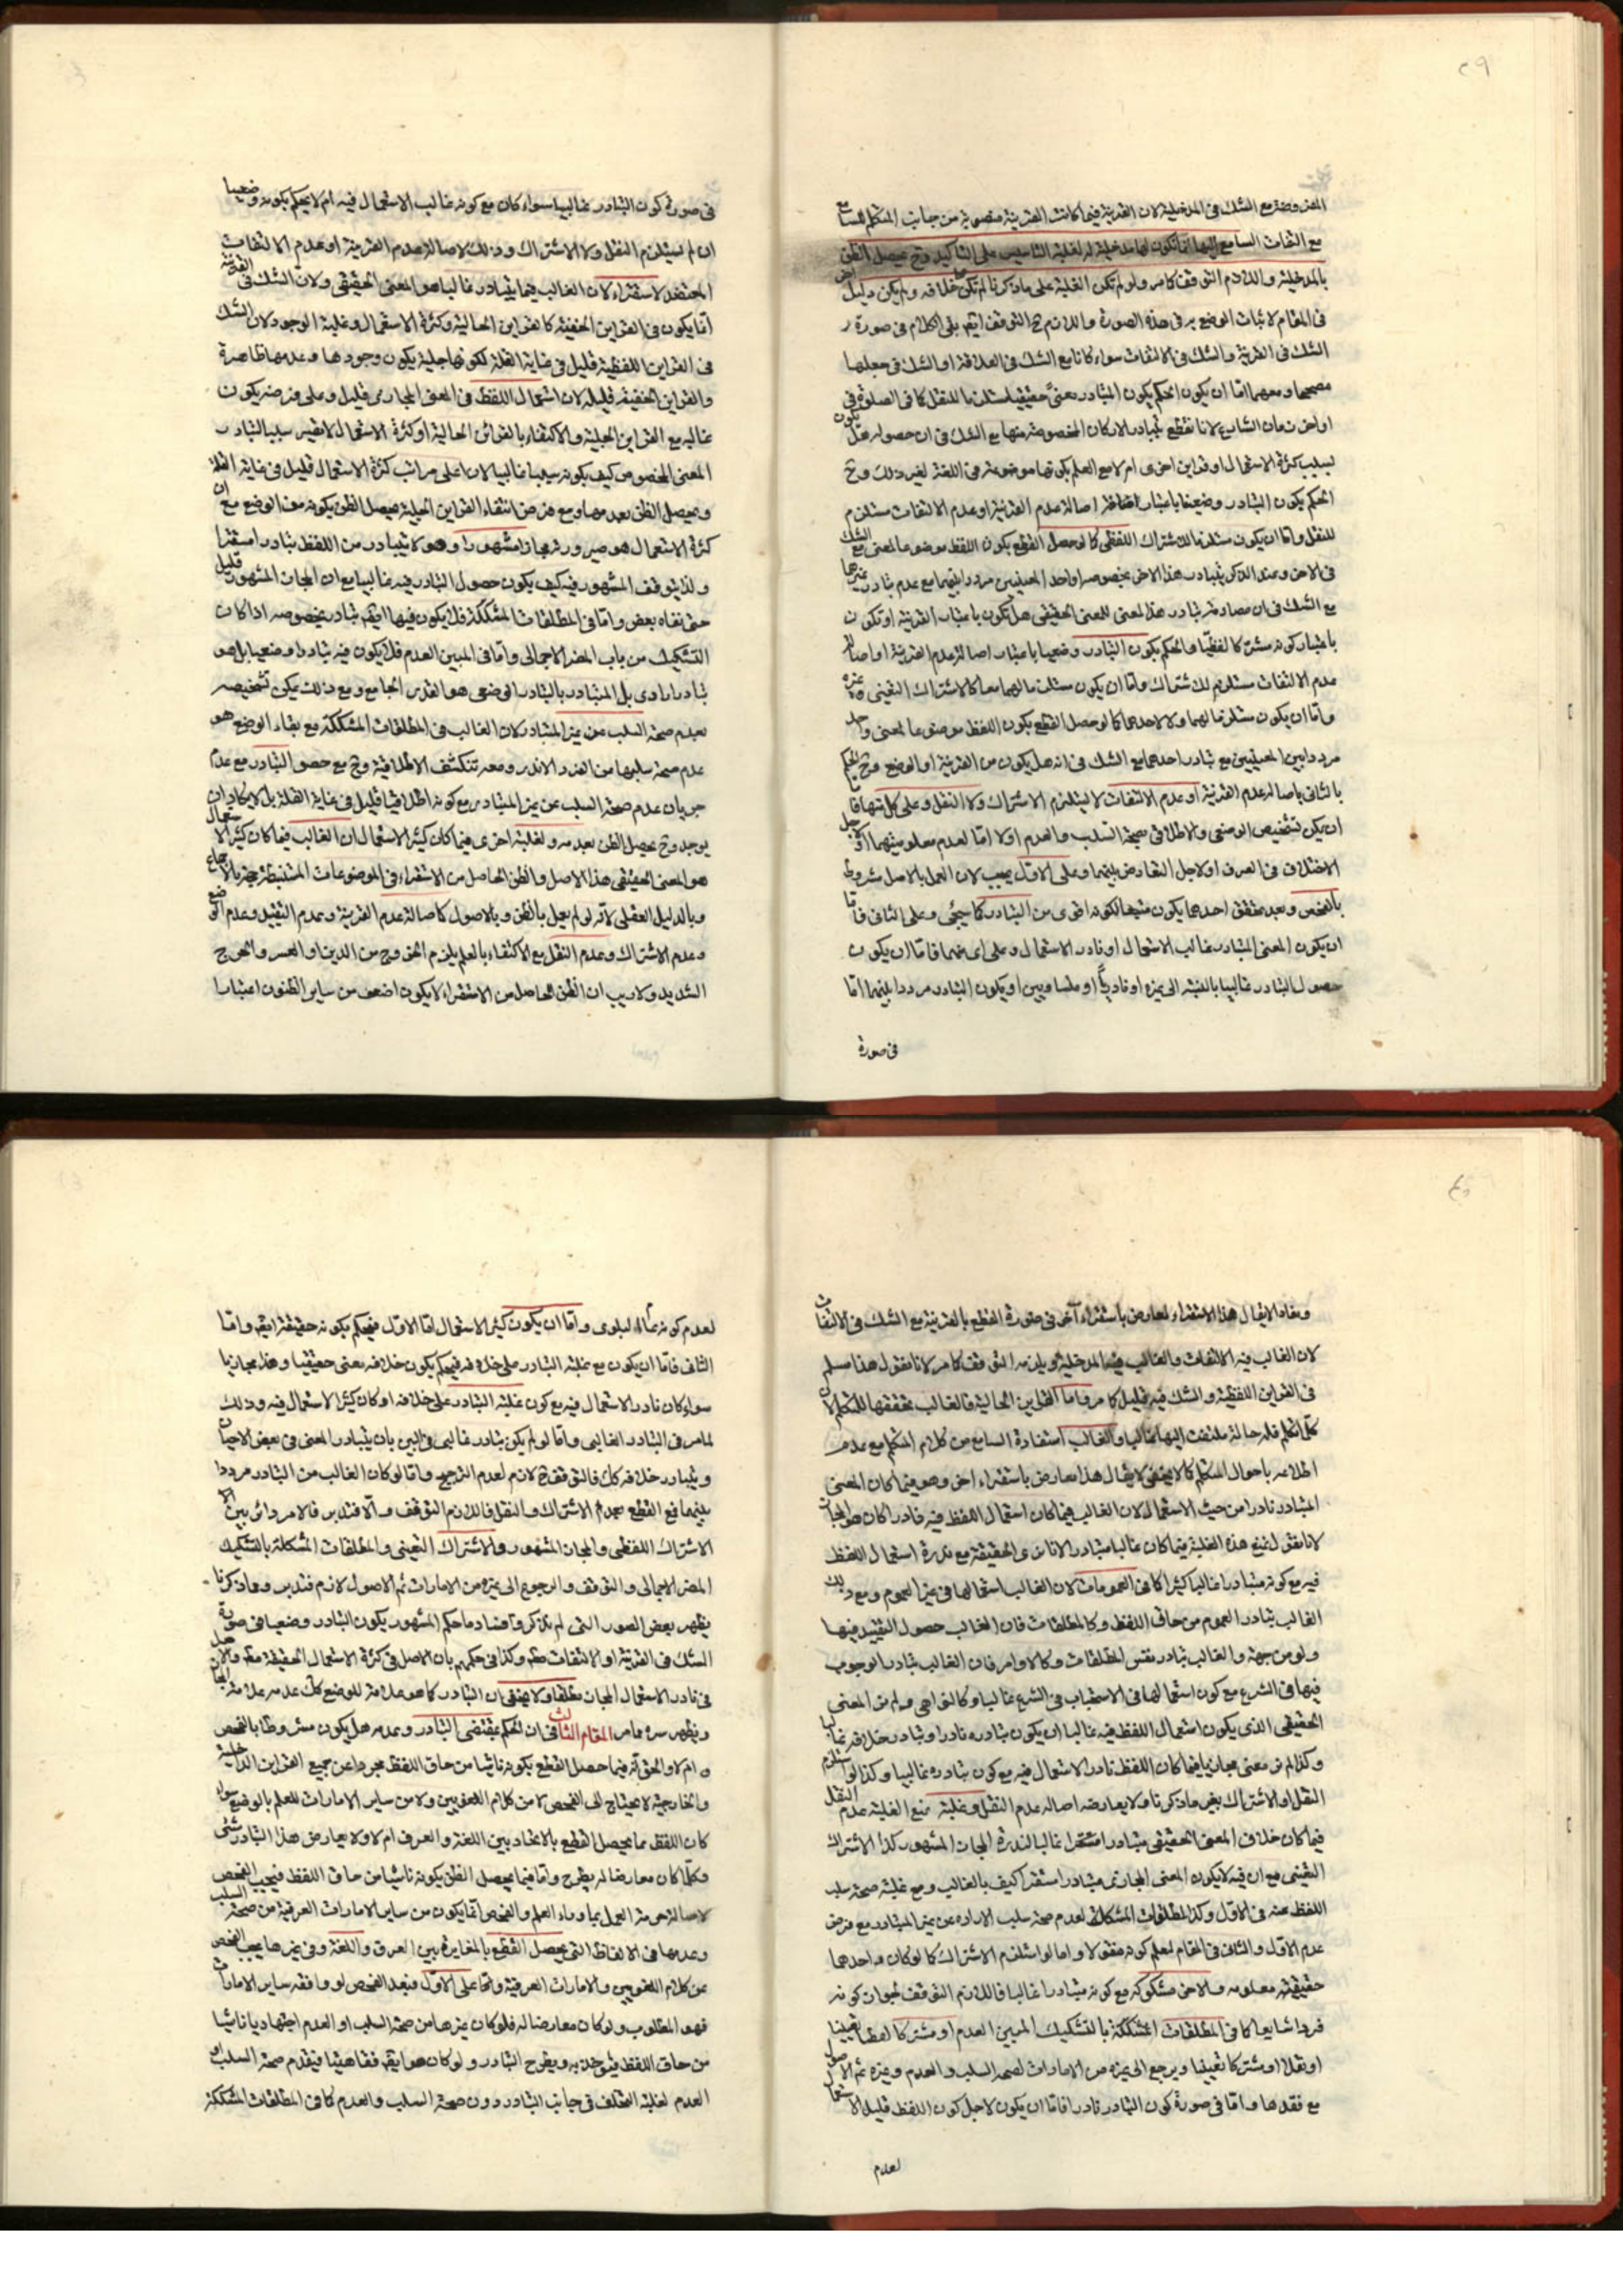 ٢٩
المفروضة مع الشك فى المدخلية لان القرينة فيما كانت القرينة منصوبة من جانب المتكلم للسامع
مع التفات السامع اليها انما تكون لها مدخلية لغلبة التاسيس على التاكيد وح يحصل الظن
بالمدخلية واللازم التوقف كما مر ولو لم تكن الغلبة على ما ذكرنا لم تكن خلافه ولم يكن دليل
فى المقام لاثبات الوضع به فى هذه الصورة واللازم ح التوقف ايضا بقى الكلام فى صورة
الشك فى القرينة والشك فى الالتفات سواء كانا مع الشك فى العلاقة او الشك فى جعلها
مصححا ومعهما اما ان يكون الحكم بكون المتبادر معنى حقيقيا مستلزما للنقل كما فى الصلوة فى
اواخر زمان الشارع لانا نقطع بتبادر الاركان المخصوصة منها مع الشك فى ان حصوله هل يكون
بسبب كثرة الاستعمال او قراين اخرى ام لا مع العلم بكونها موضوعة فى اللغة لغير ذلك وح
الحكم بكون التبادر وضعيا باعتبار اصالة عدم القرينة او عدم الالتفات مستلزم
للنقل واما ان يكون مستلزما للاشتراك اللفظى كما لو حصل القطع بكون اللفظ موضوعا لمعنى مع الشك
فى الاخر وعند الذكر يتبادر هذا الاخر بخصوصه او احد المعنيين مرددا بينهما مع عدم تبادر غيرهما
مع الشك فى ان مصادمة تبادر هذا المعنى للمعنى الحقيقى هل تكون باعتبار القرينة او تكون
باعتبار كونه مشتركا لفظيا والحكم بكون التبادر وضعيا باعتبار اصالة عدم القرينة او اصالة
عدم الالتفات مستلزم للاشتراك واما ان يكون مستلزما لهما معا كالاشتراك التعينى
واما ان لا يكون مستلزما لهما ولا لاحدهما كما لو حصل القطع بكون اللفظ موضوعا لمعنى واحد
مرددا بين المعنيين مع تبادر احدهما مع الشك فى انه هل يكون من القرينة او الوضع وح الحكم
بالثانى باصالة عدم القرينة او عدم الالتفات لا يستلزم الاشتراك ولا النقل وعلى كل منها فاما
ان يكن تشخيص الوضعى والاطلاقى بصحة السلب والعدم اولا اما لعدم معلوميتهما او لاجل
الاختلاف فى العرف او لاجل التعارض بينهما وعلى الاول يجب لان العمل بالاصل مشروط
بالفحص وبعد تحقق احدهما يكون متبعا لكونه اقوى من التبادر كما سيجئ وعلى الثانى فاما
ان يكون المعنى المتبادر غالب الاستعمال او نادر الاستعمال وعلى اى منهما فاما ان يكون
حصول التبادر غالبيا بالنسبة الى غيره او نادريا او متساويين او يكون التبادر مرددا بينهما اما
فى صورة
فى صورة كون التبادر غالبيا سواء كان مع كونه غالب الاستعمال فيه ام لا يحكم بكونه وضعيا
ان لم يستلزم النقل ولا الاشتراك وذلك لاصالة عدم القرينة او عدم الالتفات
المعتضد لاستقراء لان الغالب فيما يتبادر غالبا هو المعنى الحقيقى ولان الشك فى القرينة
انما يكون فى القراين الخفية كالقراين الحالية وكثرة الاستعمال وغلبة الوجود لان الشك
فى القراين اللفظية قليل فى غاية القلة لكونها جلية يكون وجودها وعدمها ظاهرة
والقراين الخفية قليلة لان استعمال اللفظ فى المعنى المجازى قليل وعلى فرضه يكون
غالبه مع القراين الجلية والاكتفاء بالقرائن الحالية او كثرة الاستعمال لا تصير سببا لتبادر
المعنى المخصوص كيف بكونه سببا غالبيا لان اعلى مراتب كثرة الاستعمال قليل فى غاية القلة
ويحصل الظن بعدمها ومع فرض انتفاء القراين الجلية يحصل الظن بكونه من الوضع مع ان
كثرة الاستعمال هو صيرورته مجازا مشهورا وهو لا يتبادر من اللفظ تبادرا مستقرا
ولذا يتوقف المشهور فيه كيف يكون حصول التبادر فيه غالبيا مع ان المجاز المشهور قليل
حتى نفاه بعض واما فى المطلقات المشككة فلا يكون فيها ايضا تبادر بخصوصه اذا كان
التشكيك من باب المضر الاجمالى واما فى المبين العدم فلا يكون فيه تبادرا وضعيا بل هو
تبادر ارادى بل المتبادر بالتبادر الوضعى هو القدر الجامع ومع ذلك يمكن تشخيصه
بعدم صحة السلب عن غير المتبادر لان الغالب فى المطلقات المشككة مع بقاء الوضع هو
عدم صحة سلبها من الفرد الاندر ومعه تنكشف الاطلاقية وح مع حصول التبادر مع عدم
جريان عدم صحة السلب عن غير المتبادر مع كونه اطلاقيا قليل فى غاية القلة بل لا يكاد ان
يوجد وح يحصل الظن بعدمه ولغلبة اخرى فيما كان كثير الاستعمال ان الغالب فيما كان كثير الاستعمال
هو المعنى الحقيقى هذا الاصل والظن الحاصل من الاستقراء فى الموضوعات المستنبطة حجة بالاجماع
وبالدليل العقلى لانه لو لم يعمل بالظن وبالاصول كاصالة عدم القرينة وعدم التقييد وعدم الوضع
وعدم الاشتراك وعدم النقل مع الاكتفاء بالعلم يلزم الخروج من الدين او العسر والحرج
الشديد ولا ريب ان الظن الحاصل من الاستقراء لا يكون اضعف من ساير الظنون اعتبارا
وبهذا لا يقال هذا الاستقراء معارض باستقراء آخر فى صورة القطع بالقرينة مع الشك فى الالتفات
لان الغالب فيه الالتفات والغالب فيها المدخلية ويلزمه التوقف كما مر لانا نقول هذا مسلم
فى القراين اللفظية والشك فيه قليل كما مر واما القراين الحالية فالغالب تحققها للمتكلم لان
كل متكلم فله حالة ملتفت اليها غالبا والغالب استفادة السامع من كلام المتكلم مع عدم
اطلاعه باحوال المتكلم كما لا يخفى لا يقال هذا معارض باستقراء اخر وهو فيما كان المعنى
المتبادر نادرا من حيث الاستعمال لان الغالب فيما كان استعمال اللفظ فيه نادرا كان هو المجاز
لانا نقول نمنع هذه الغلبة فيما كان غالبا متبادرا لانا نرى الحقيقة مع ندرة استعمال اللفظ
فيه مع كونه متبادرا غالبا كثيرا كما فى العمومات لان الغالب استعمالها فى غير العموم ومع ذلك
الغالب تبادر العموم من حاق اللفظ وكالمطلقات فان الغالب حصول التقييد فيها
ولو من جهة والغالب تبادر نفس المطلقات وكالاوامر فان الغالب تبادر الوجوب
فيها فى الشرع مع كون استعمالها فى الاستحباب فى الشرع غالبا وكالنواهى ولم نر المعنى
الحقيقى الذى يكون استعمال اللفظ فيه غالبا ان يكون تبادره نادرا وتبادر خلافه غالبا
وكذا لم نر معنى مجازيا فيما كان اللفظ نادر الاستعمال فيه مع كون تبادره غالبيا وكذا لو استلزم
النقل او الاشتراك بعين ما ذكرنا ولا يعارضه اصالة عدم النقل وغلبته بمنع الغلبة عدم النقل
فيما كان خلاف المعنى الحقيقى متبادرا مستقرا غالبا لندرة المجاز المشهور كذا الاشتراك
التعينى مع ان فيه لا يكون المعنى المجازى متبادرا مستقرا كيف بالغالب ومع غلبة صحة سلب
اللفظ عنه فى الاول وكذا المطلقات المشككة لعدم صحة سلب الارادة عن غير المتبادر مع فرض
عدم الاول والثانى فى المقام لعلم كونه منقولا واما لو استلزم الاشتراك كما لو كان واحدهما
حقيقته معلومه والاخر مشكوكه مع كونه متبادرا غالبا فاللازم التوقف لجواز كونه
فردا شايعا كما فى المطلقات المشككة بالتشكيك المبين العدم او مشتركا لفظا تعيينا
او نقلا او مشتركا تعيينا ويرجع الى غيره من الامارات لصحة السلب والعدم وغيره ثم الاصول
مع فقدها واما فى صورة كون التبادر نادرا فاما ان يكون لاجل كون اللفظ قليل الاستعمال
لعدم
لعدم كونه عام البلوى واما ان يكون كثير الاستعمال اما الاول فيحكم بكونه حقيقة ايضا واما
الثانى فاما ان يكون مع غلبة التبادر على خلافه فيحكم بكون خلافه معنى حقيقيا وهذا مجازيا
سواء كان نادر الاستعمال فيه مع كون غلبة التبادر على خلافه او كان كثير الاستعمال فيه وذلك
لما مر فى التبادر الغالبى واما لو لم يكن تبادر غالبى فى البين بان يتبادر المعنى فى بعض الاحيان
ويتبادر خلافه كك فالتوقف ح لازم لعدم الترجيح واما لو كان الغالب من التبادر مرددا
بينهما فمع القطع بعدم الاشتراك والنقل فاللازم التوقف والا فتدبر فالامر دائر بين
الاشتراك اللفظى والمجاز المشهور والاشتراك التعينى والمطلقات المشككة بالتشكيك
المضر الاجمالى والتوقف والرجوع الى غيره من الامارات ثم الاصول لازم فتدبر ومما ذكرنا
يظهر بعض الصور التى لم تذكر وفساد ما حكم المشهور بكون التبادر وضعيا فى صورة
الشك فى القرينة او الالتفات مطلقا وكذا فى حكمهم بان الاصل فى كثرة الاستعمال الحقيقة مطلقا والاصل
فى نادر الاستعمال المجاز مطلقا ولا يخفى ان التبادر كما هو علامة للوضع كك عدمه علامة للمجاز
ويظهر سره مما مر المقام الثالث فى ان الحكم بمقتضى التبادر وعدمه هل يكون مشروطا بالفحص
ام لا والحق انه فيما حصل القطع بكونه ناشيا من حاق اللفظ مجردا عن جميع القراين الداخلية
والخارجية لا يحتاج الى الفحص لا من كلام اللغويين ولا من ساير الامارات للعلم بالوضع سواء
كان اللفظ مما يحصل القطع بالاتحاد بين اللغة والعرف ام لا ولا يعارض هذا التبادر شئ
وكلما كان معارضا له يطرح واما فيما يحصل الظن بكونه ناشيا من حاق اللفظ فيجب الفحص
لاصالة حرمة العمل بما وراء العلم والفحص انما يكون من ساير الامارات العرفية من صحة السلب
وعدمها فى الالفاظ التى يحصل القطع بالمغايرة بين العرف واللغة وفى غيرها يجب الفحص
عن كلام اللغويين والامارات العرفية واما على الاول فبعد الفحص لو وافقه ساير الامارات
فهو المطلوب ولو كان معارضا له فلو كان غيرها من صحة السلب او العدم اجتهاديا ناشيا
من حاق اللفظ فيؤخذ به ويطرح التبادر ولو كان هو ايضا فقاهتيا فيقدم صحة السلب او
العدم لغلبة التخلف فى جانب التبادر دون صحة السلب والعدم كما فى المطلقات المشككة